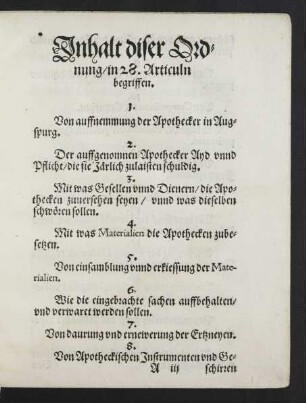 Inhalt diser Ord-
nung/in 28. Articuln
begriffen.
1.
Von auffnemmung der Apothecker in Aug-
spurg.
2.
Der auffgenomnen Apothecker Ayd vnnd
Pflicht/die sie Järlich zulaisten schuldig.
3.
Mit was Gesellen vnnd Dienern/die Apo-
thecken zuuersehen seyen / vnnd was dieselben
schwören sollen.
4.
Mit was Materialien die Apothecken zube-
setzen.
5.
Von einsamblung vnnd erkiessung der Mate-
rialien.
6.
Wie die eingebrachte sachen auffbehalten/
vnd verwaret werden sollen.
7.
Von daurung vnd ernewerung der Ertzneyen.
8.
Von Apotheckischen Instrumenten vnd Ge-
A iij schirren